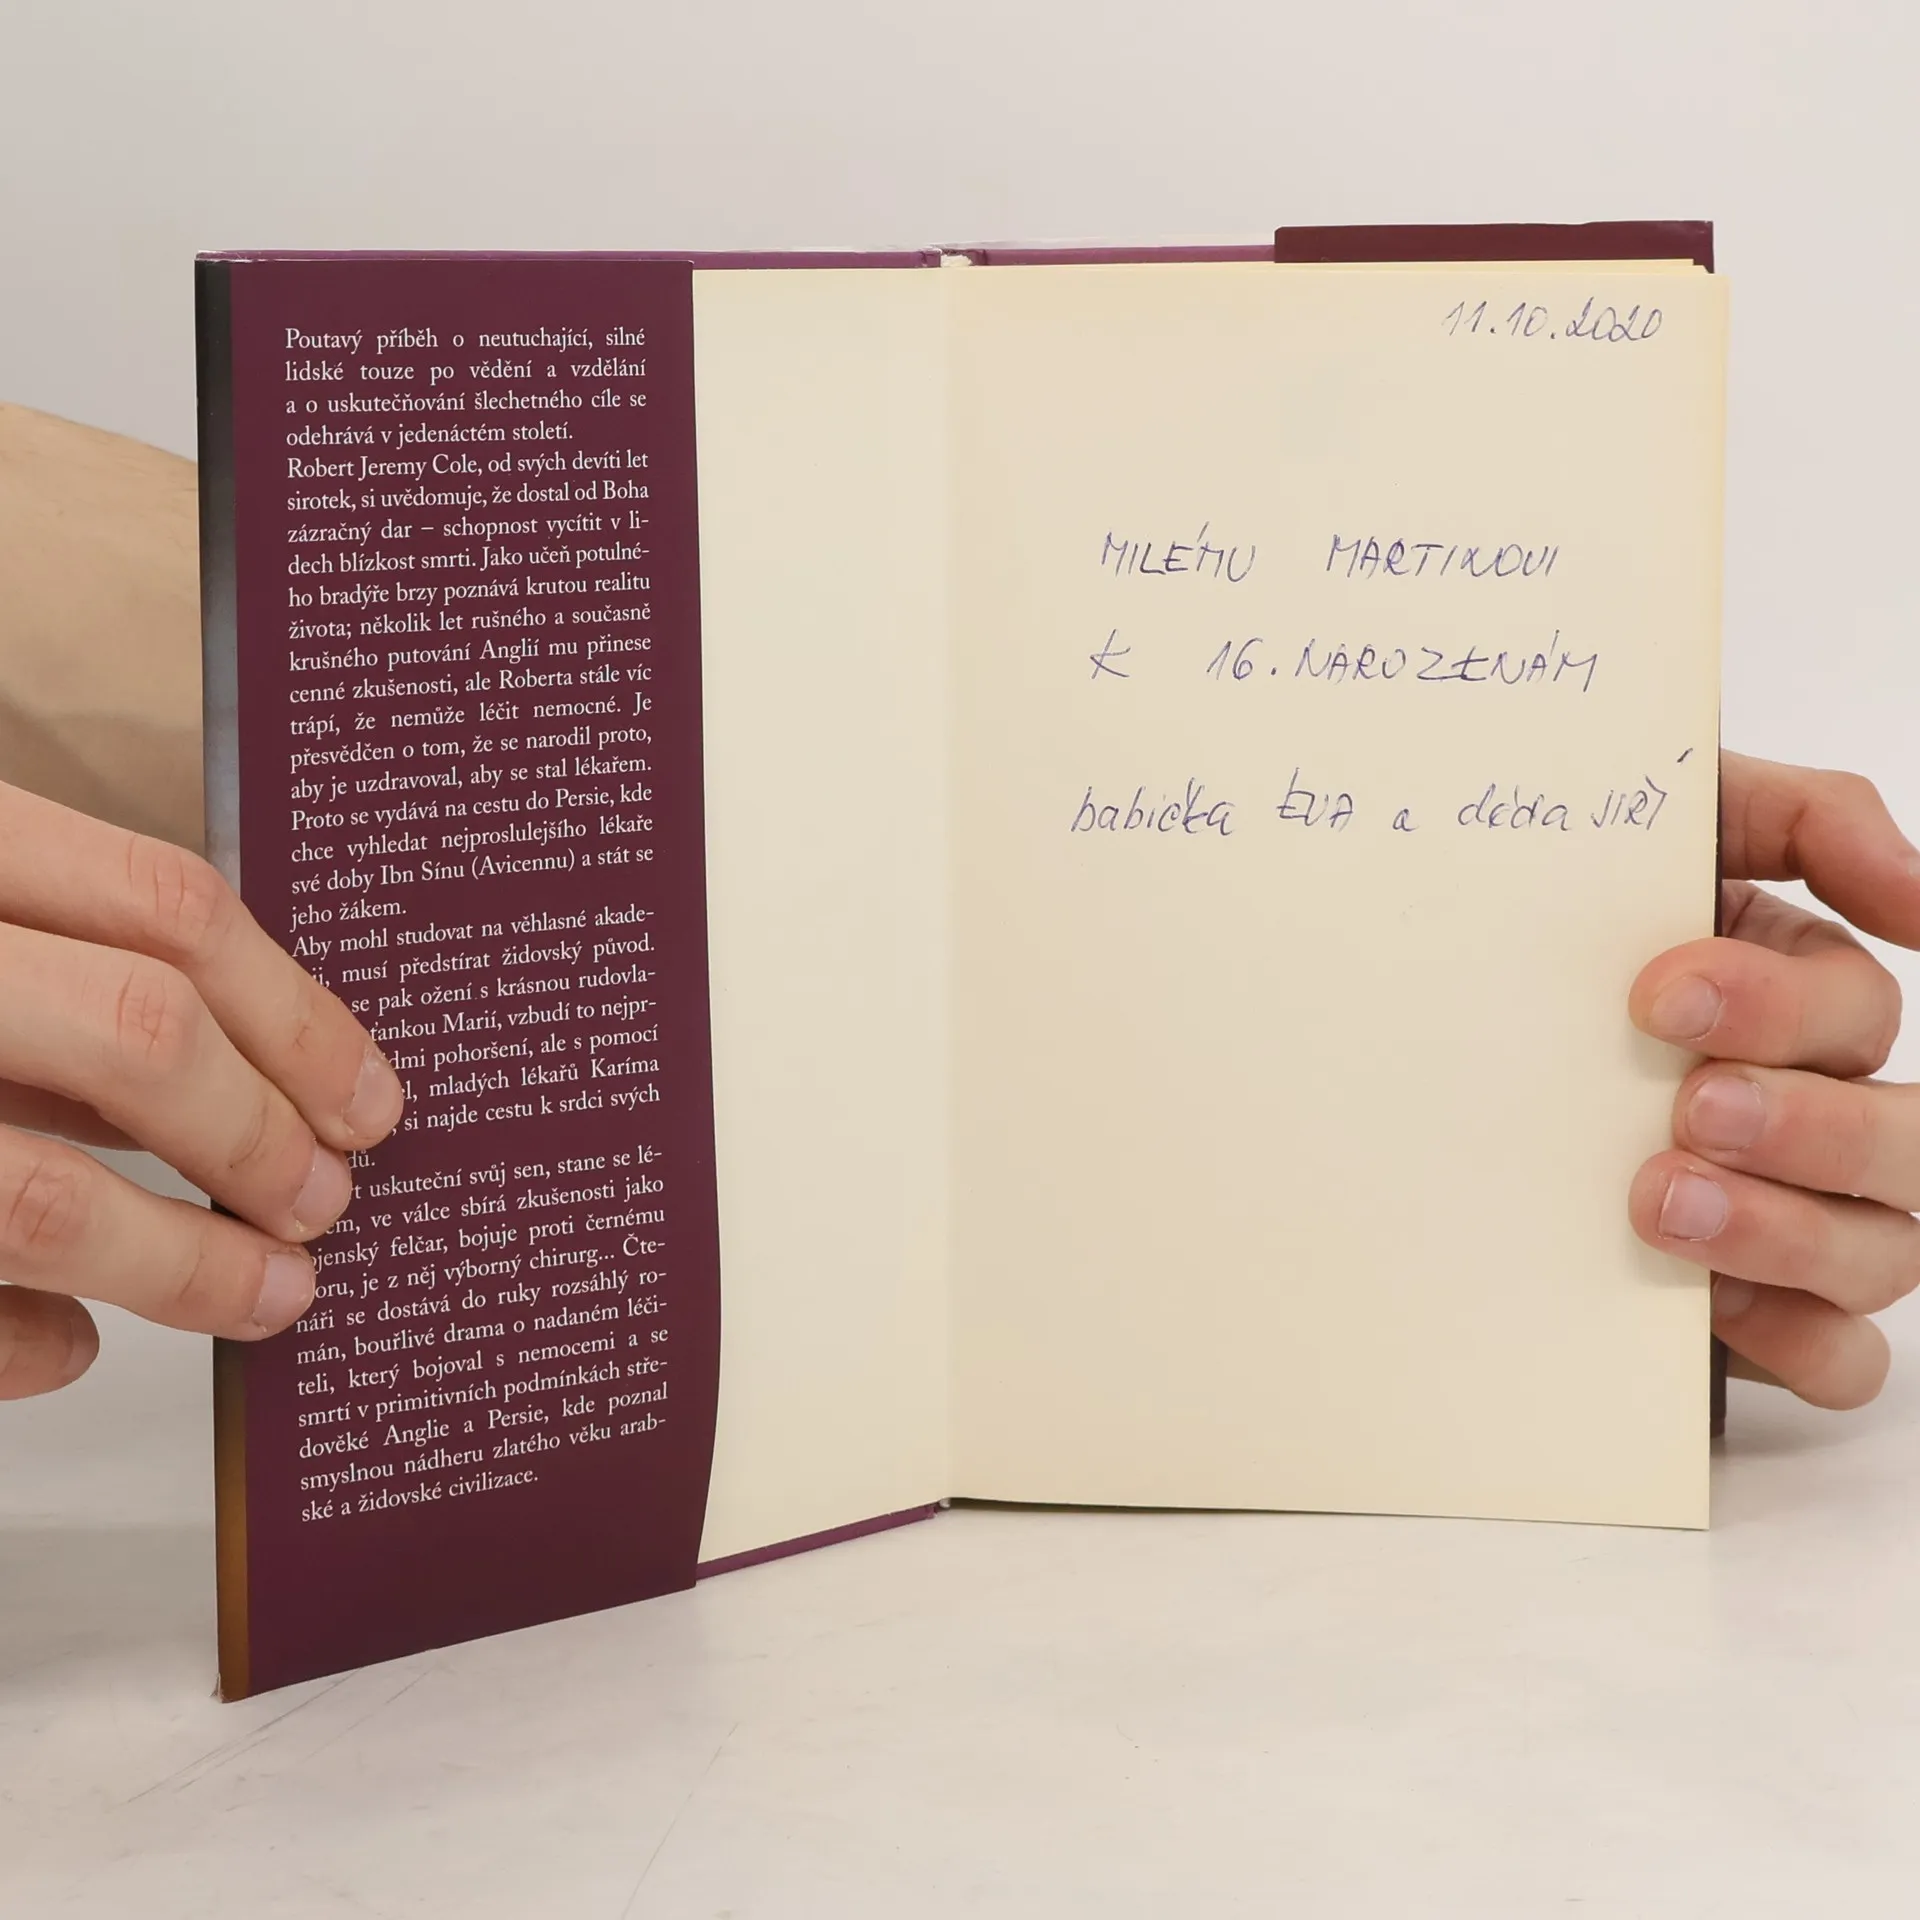 Poutavý příběh o neutuchající, silné
lidské touze po vědění a vzdělání
a o uskutečňování šlechetného cíle se
odehrává v jedenáctém století.
Robert Jeremy Cole, od svých devíti let
sirotek, si uvědomuje, že dostal od Boha
zázračný dar – schopnost vycítit v li-
dech blízkost smrti. Jako učeň potulné-
ho bradýře brzy poznává krutou realitu
života; několik let rušného a současně
krušného putování Anglií mu přinese
cenné zkušenosti, ale Roberta stále víc
trápí, že nemůže léčit nemocné. Je
přesvědčen o tom, že se narodil proto,
aby je uzdravoval, aby se stal lékařem.
Proto se vydává na cestu do Persie, kde
chce vyhledat nejproslulejšího lékaře
své doby Ibn Sínu (Avicennu) a stát se
jeho žákem.
Aby mohl studovat na věhlasné akade-
musí předstírat židovský původ.
se pak ožení s krásnou rudovla-
Marií, vzbudí to nejpr-
pohoršení, ale s pomocí
mladých lékařů Karíma
si najde cestu k srdci svých
uskuteční svůj sen, stane se lé-
ve válce sbírá zkušenosti jako
felčar, bojuje proti černému
je z něj výborný chirurg... Čte-
náři se dostává do ruky rozsáhlý ro-
mán, bouřlivé drama o nadaném léči-
teli, který bojoval s nemocemi a se
smrtí v primitivních podmínkách stře-
dověké Anglie a Persie, kde poznal
smyslnou nádheru zlatého věku arab-
ské a židovské civilizace.
11.10.2020
MILÉMU MARTINOVI
K 16. NAROZENÁM
babička EVA a děda JIŘÍ